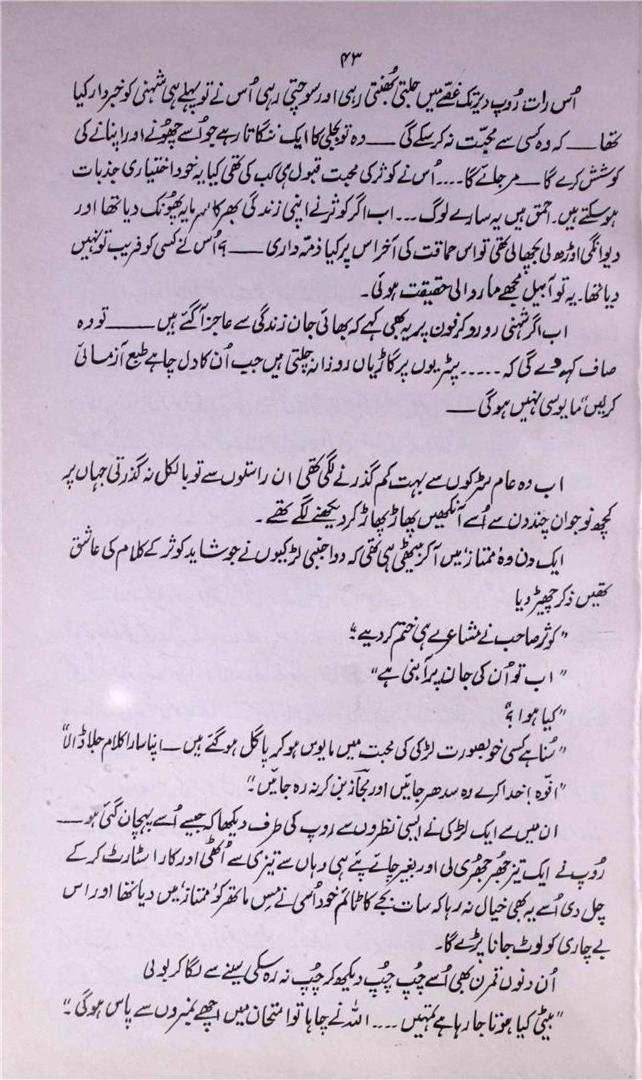 ۴۳
اُس رات رُوپ دیر تک غصّے میں جلتی بُھنتی رہی اور سوچتی رہی اُس نے تو پہلے ہی شہنی کو خبردار کیا
تھا — کہ وہ کسی سے محبت نہ کر سکے گی — وہ تو بجلی کا ایک ننگا تار ہے جو اُسے چھونے اور اپنانے کی
کوشش کرے گا — مر جائے گا.... اُس نے کوثر کی محبت قبول ہی کب کی تھی کیا یہ خود اختیاری جذبات
ہو سکتے ہیں. احمق ہیں یہ سارے لوگ ... اب اگر کوثر نے اپنی زندگی بھر کا سرمایہ پھونک دیا تھا اور
دیوانگی اوڑھ لی بچھا لی تھی تو اس حماقت کی آخر اس پر کیا ذمّہ داری — ؟ اُس نے کسی کو فریب تو نہیں
دیا تھا. یہ تو آ بیل مجھے مار والی حقیقت ہوئی.
اب اگر شہنی رو رو کر فون پر یہ بھی کہے کہ بھائی جان زندگی سے عاجز آ گئے ہیں — تو وہ
صاف کہہ دے گی کہ ..... پٹریوں پر گاڑیاں روزانہ چلتی ہیں جب اُن کا دل چاہے طبع آزمائی
کریں" مایوسی نہیں ہوگی —
اب وہ عام سڑکوں سے بہت کم گذرنے لگی تھی ان راستوں سے تو بالکل نہ گذرتی جہاں پر
کچھ نوجوان چند دن سے اُسے آنکھیں پھاڑ پھاڑ کر دیکھنے لگے تھے۔
ایک دن وہ ممتاز میں آ کر بیٹھی ہی تھی کہ دو اجنبی لڑکیوں نے جو شاید کوثر کے کلام کی عاشق
تھیں ذکر چھیڑ دیا
"کوثر صاحب نے مشاعرے ہی ختم کر دیے؛
"اب تو اُن کی جان پر آ بنی ہے"
"کیا ہوا؟"
"سُنا ہے کسی خوبصورت لڑکی کی محبت میں مایوس ہو کر پاگل ہو گئے ہیں — اپنا سارا کلام جلا ڈالا"
"افوہ! خدا کرے وہ سدھر جائیں اور مجاز بن کر نہ رہ جائیں۔"
ان میں سے ایک لڑکی نے ایسی نظروں سے روپ کی طرف دیکھا کہ جیسے اُسے پہچان گئی ہو —
رُوپ نے ایک تیز جُھر جُھری لی اور بغیر چائے پئے ہی وہاں سے تیزی سے اُٹھی اور کار اسٹارٹ کر کے
چل دی اُسے یہ بھی خیال نہ رہا کہ سات بجے کا ٹائم خود اُسی نے مِس ماتھر کو 'ممتاز' میں دیا تھا اور اس
بے چاری کو لوٹ جانا پڑے گا۔
اُن دنوں قمرن بھی اُسے چُپ چُپ دیکھ کر چُپ نہ رہ سکی سینے سے لگا کر بولی
"بیٹی کیا ہوتا جا رہا ہے تمہیں .... اللہ نے چاہا تو امتحان میں اچھے نمبروں سے پاس ہوگی۔"